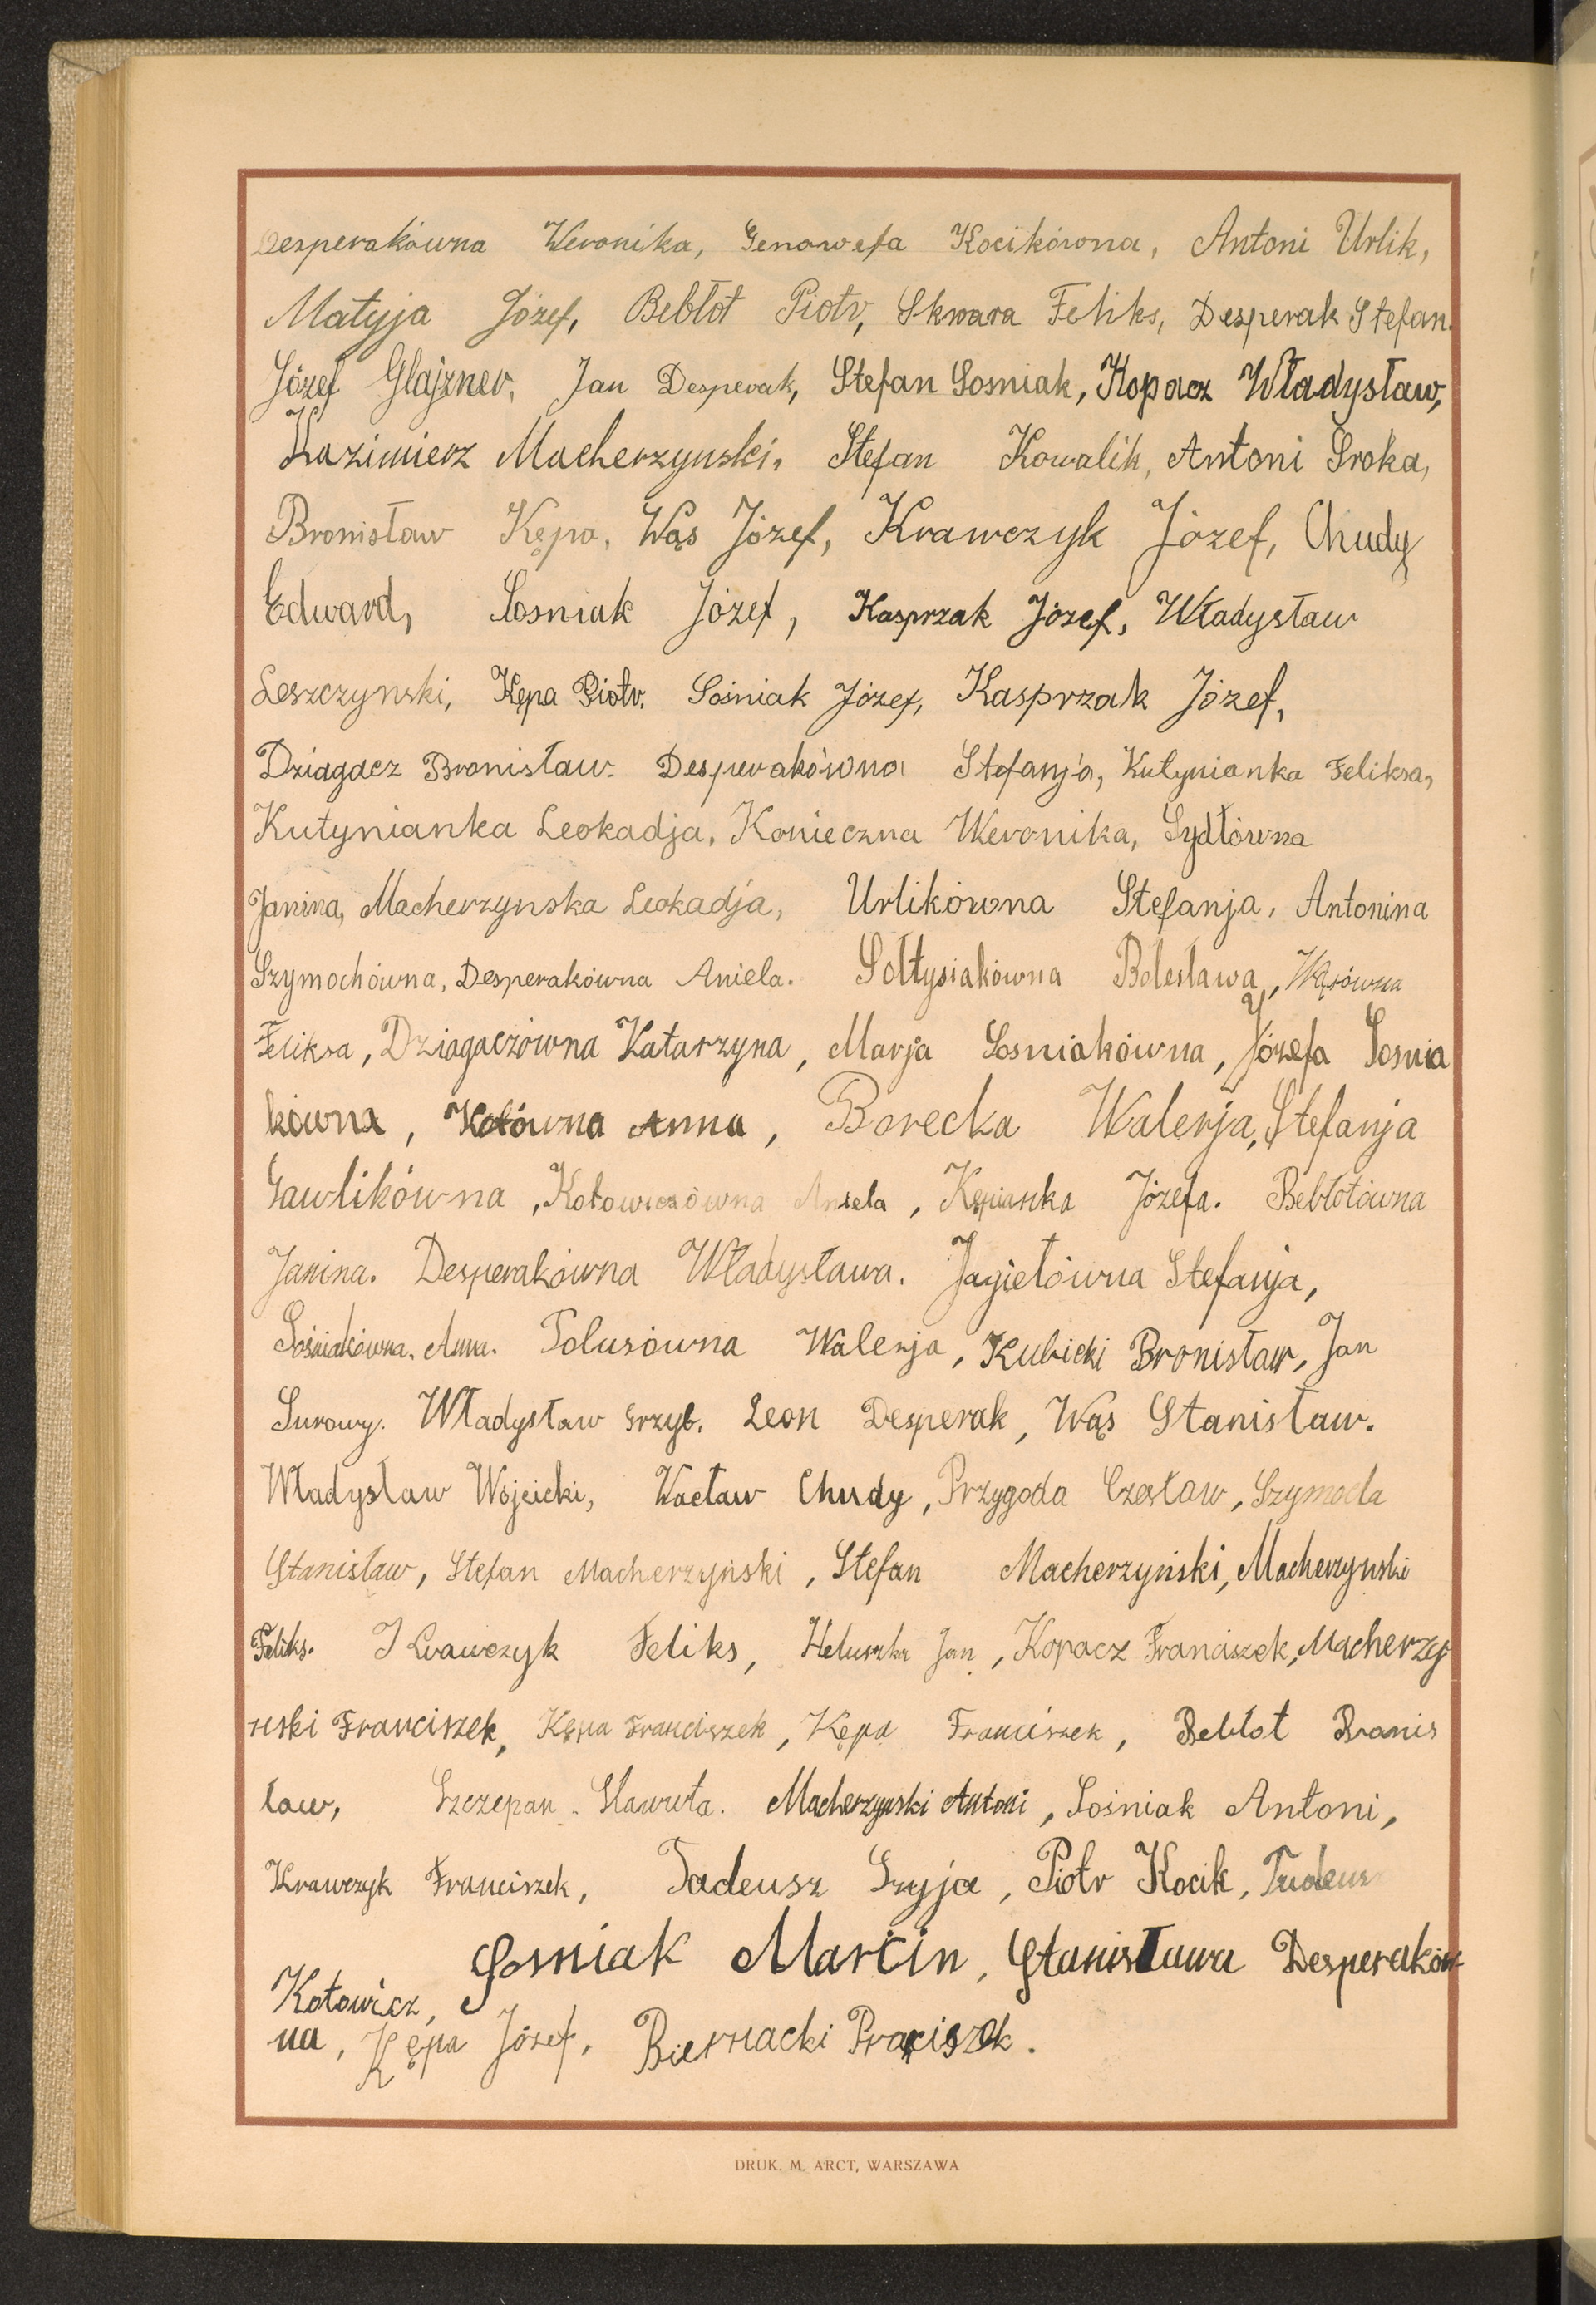 Desperakówna Weronika, Genowefa Kocikówna, Antoni Urlik,
Matyja Józef, Bebłot Piotr, Skwara Feliks, Desperak Stefan.
Józef Glajzner, Jan Desperak, Stefan Sosniak, Kopacz Władysław,
Kazimierz Macherzynski, Stefan Kowalik, Antoni Sroka,
Bronisław Kępa, Wąs Józef, Krawczyk Józef, Chudy
Edward, Sosniak Józef, Kasprzak Józef, Władysław
Leszczynski, Kępa Piotr, Sośniak Józef, Kasprzak Józef,
Dziagacz Bronisław. Desperakówna Stefanja, Kutynianka Feliksa,
Kutynianka Leokadja, Konieczna Weronika, Sydłówna
Janina, Macherzynska Leokadja, Urlikówna Stefanja, Antonina
Szymochówna, Desperakówna Aniela. Sołtysiakówna Bolesława, Wąsówna
Feliksa, Dziagaczówna Katarzyna, Marja Sosniakówna, Józefa Sosnia
kówna, Kotówna Anna, Borecka Walerja, Stefanja
Gawlikówna, Kotowiczówna Aniela, Kępianka Józefa. Bebłotówna
Janina. Desperakówna Władysława. Jagiełówna Stefanja,
Sośniakówna. Anna. Polusówna Walerja, Kubicki Bronisław, Jan
Surowy. Władysław Grzyb. Leon Desperak, Wąs Stanisław.
Władysław Wójcicki, Wacław Chudy, Przygoda Czesław, Szymocha
Stanisław, Stefan Macherzyński, Stefan Macherzyński, Macherzynski
Feliks. Krawczyk Feliks, Heluszka Jan, Kopacz Franciszek, Macherzy
nski Franciszek, Kępa Franciszek, Kępa Franciszek, Bebłot Bronis
ław, Szczepan Sławuta. Macherzynski Antoni, Sośniak Antoni,
Krawczyk Franciszek, Tadeusz Szyja, Piotr Kocik, Tadeusz
Kotowicz, Sosniak Marcin, Stanisława Desperaków
na, Kępa Józef, Biernacki Praciszek.
DRUK. M. ARCT, WARSZAWA